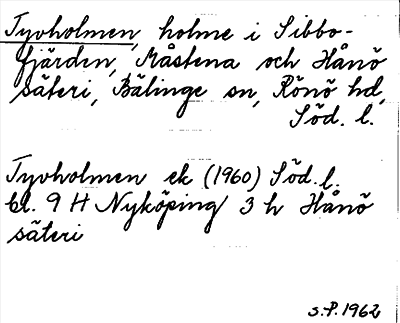 Tyvholmen, holme i Sibbo-
fjärden, Måstena och Hånö
säteri, Bälinge sn, Rönö hd,
Söd. l.
Tyvholmen ek (1960) Söd. l.
bl. 9 H Nyköping 3 h Hånö
säteri
S.P. 1962